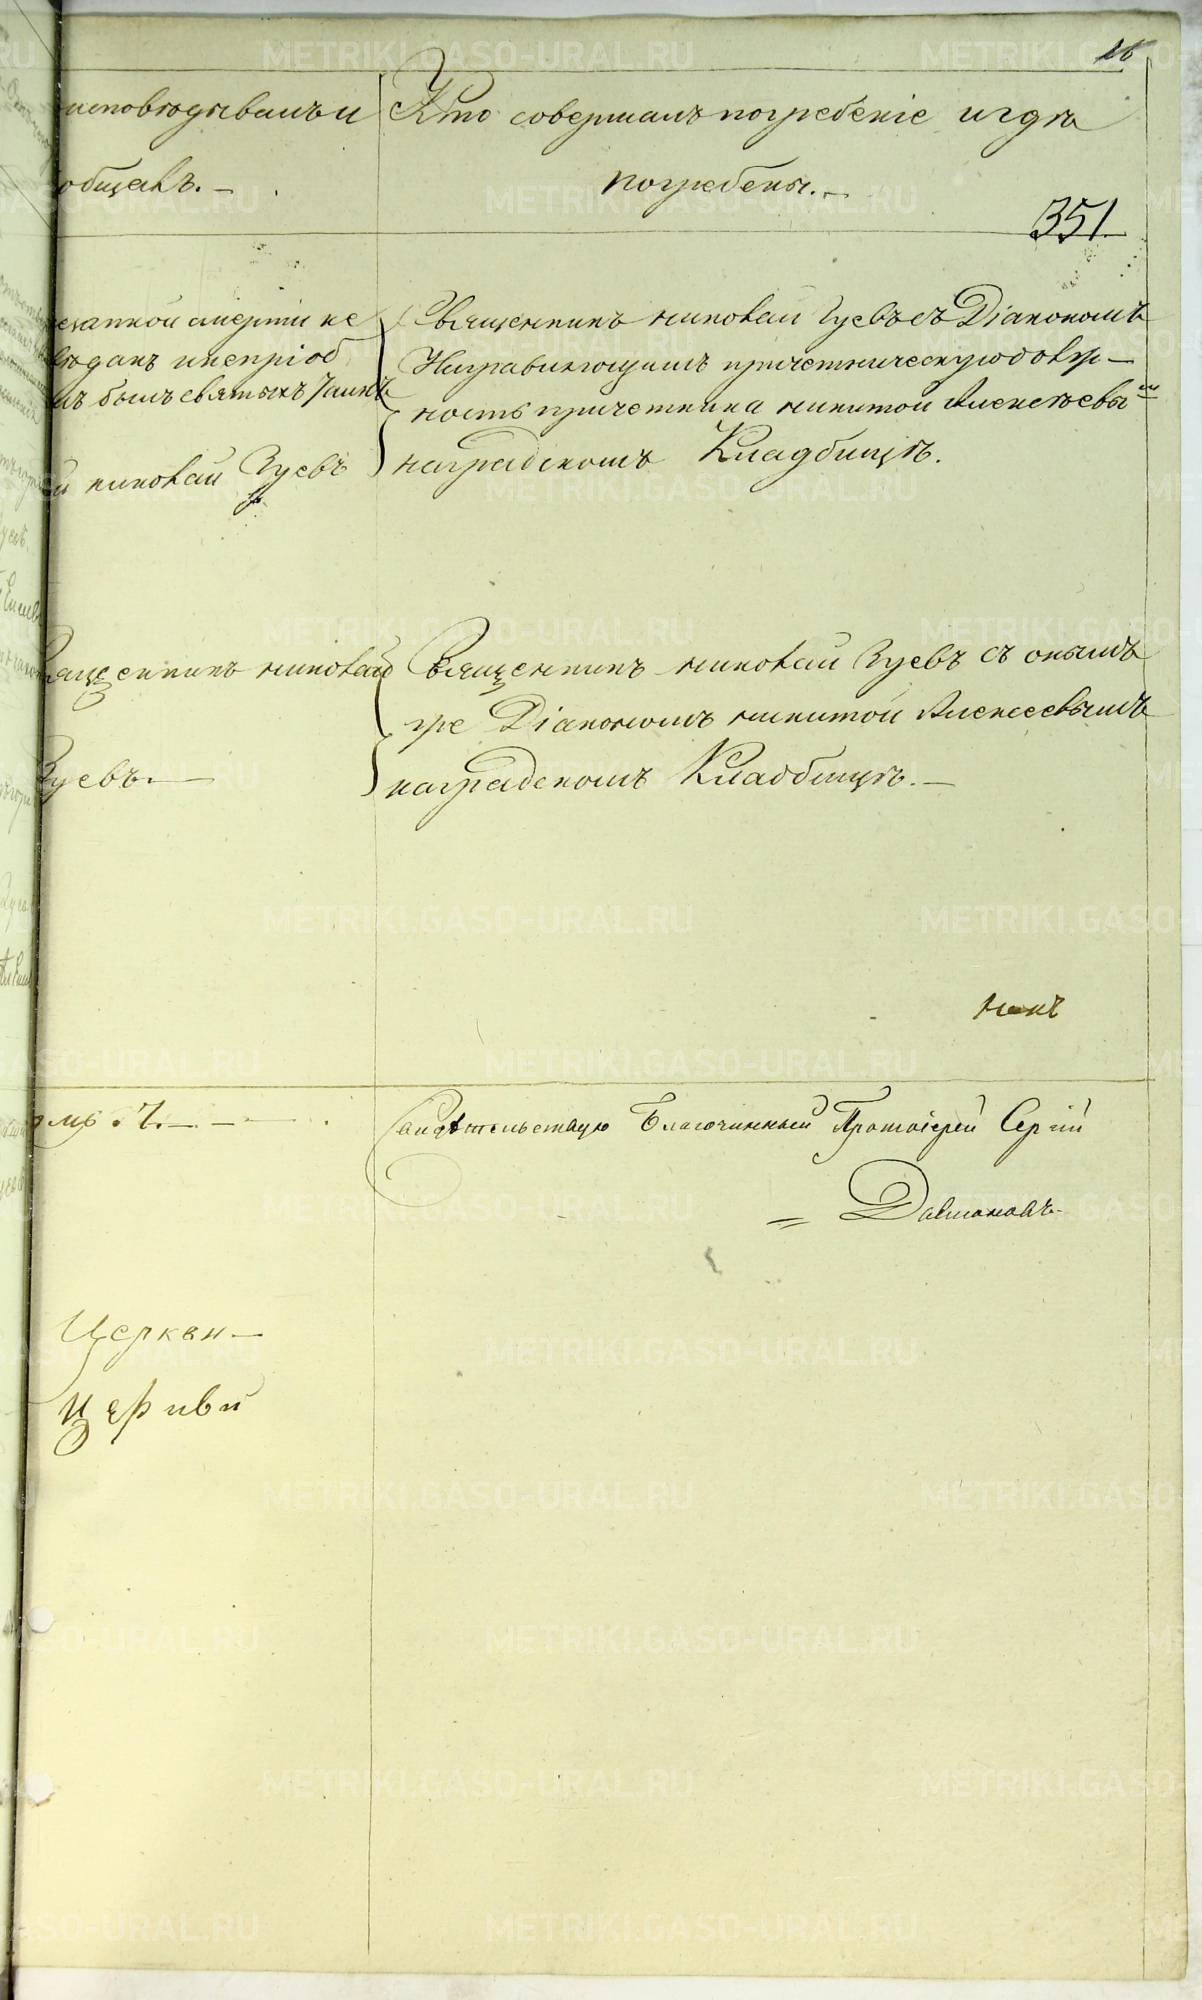 26
исповѣдывалъ и
общалъ.
Кто совершалъ погребеніе и гдѣ
погребены.
351
незапной смерти не
вѣданъ и непріоб
былъ святыхъ Таинъ
й Николай Зуевъ
Священникъ Николай Зуевъ съ Діакономъ
Исправляющимъ причетническую долж-
ность причетника Никитой Алексѣевы
на градскомъ Кладбищѣ.
ященникъ Николай
Зуевъ.
Священникъ Николай Зуевъ съ онымъ
же Діакономъ Никитой Алексеевымъ
на градскомъ Кладбищѣ.
7.
Свидѣтельствую Благочинный Протоіерей Сергій
Церкви
Церкви
METRIKI.GASO-URAL.RU